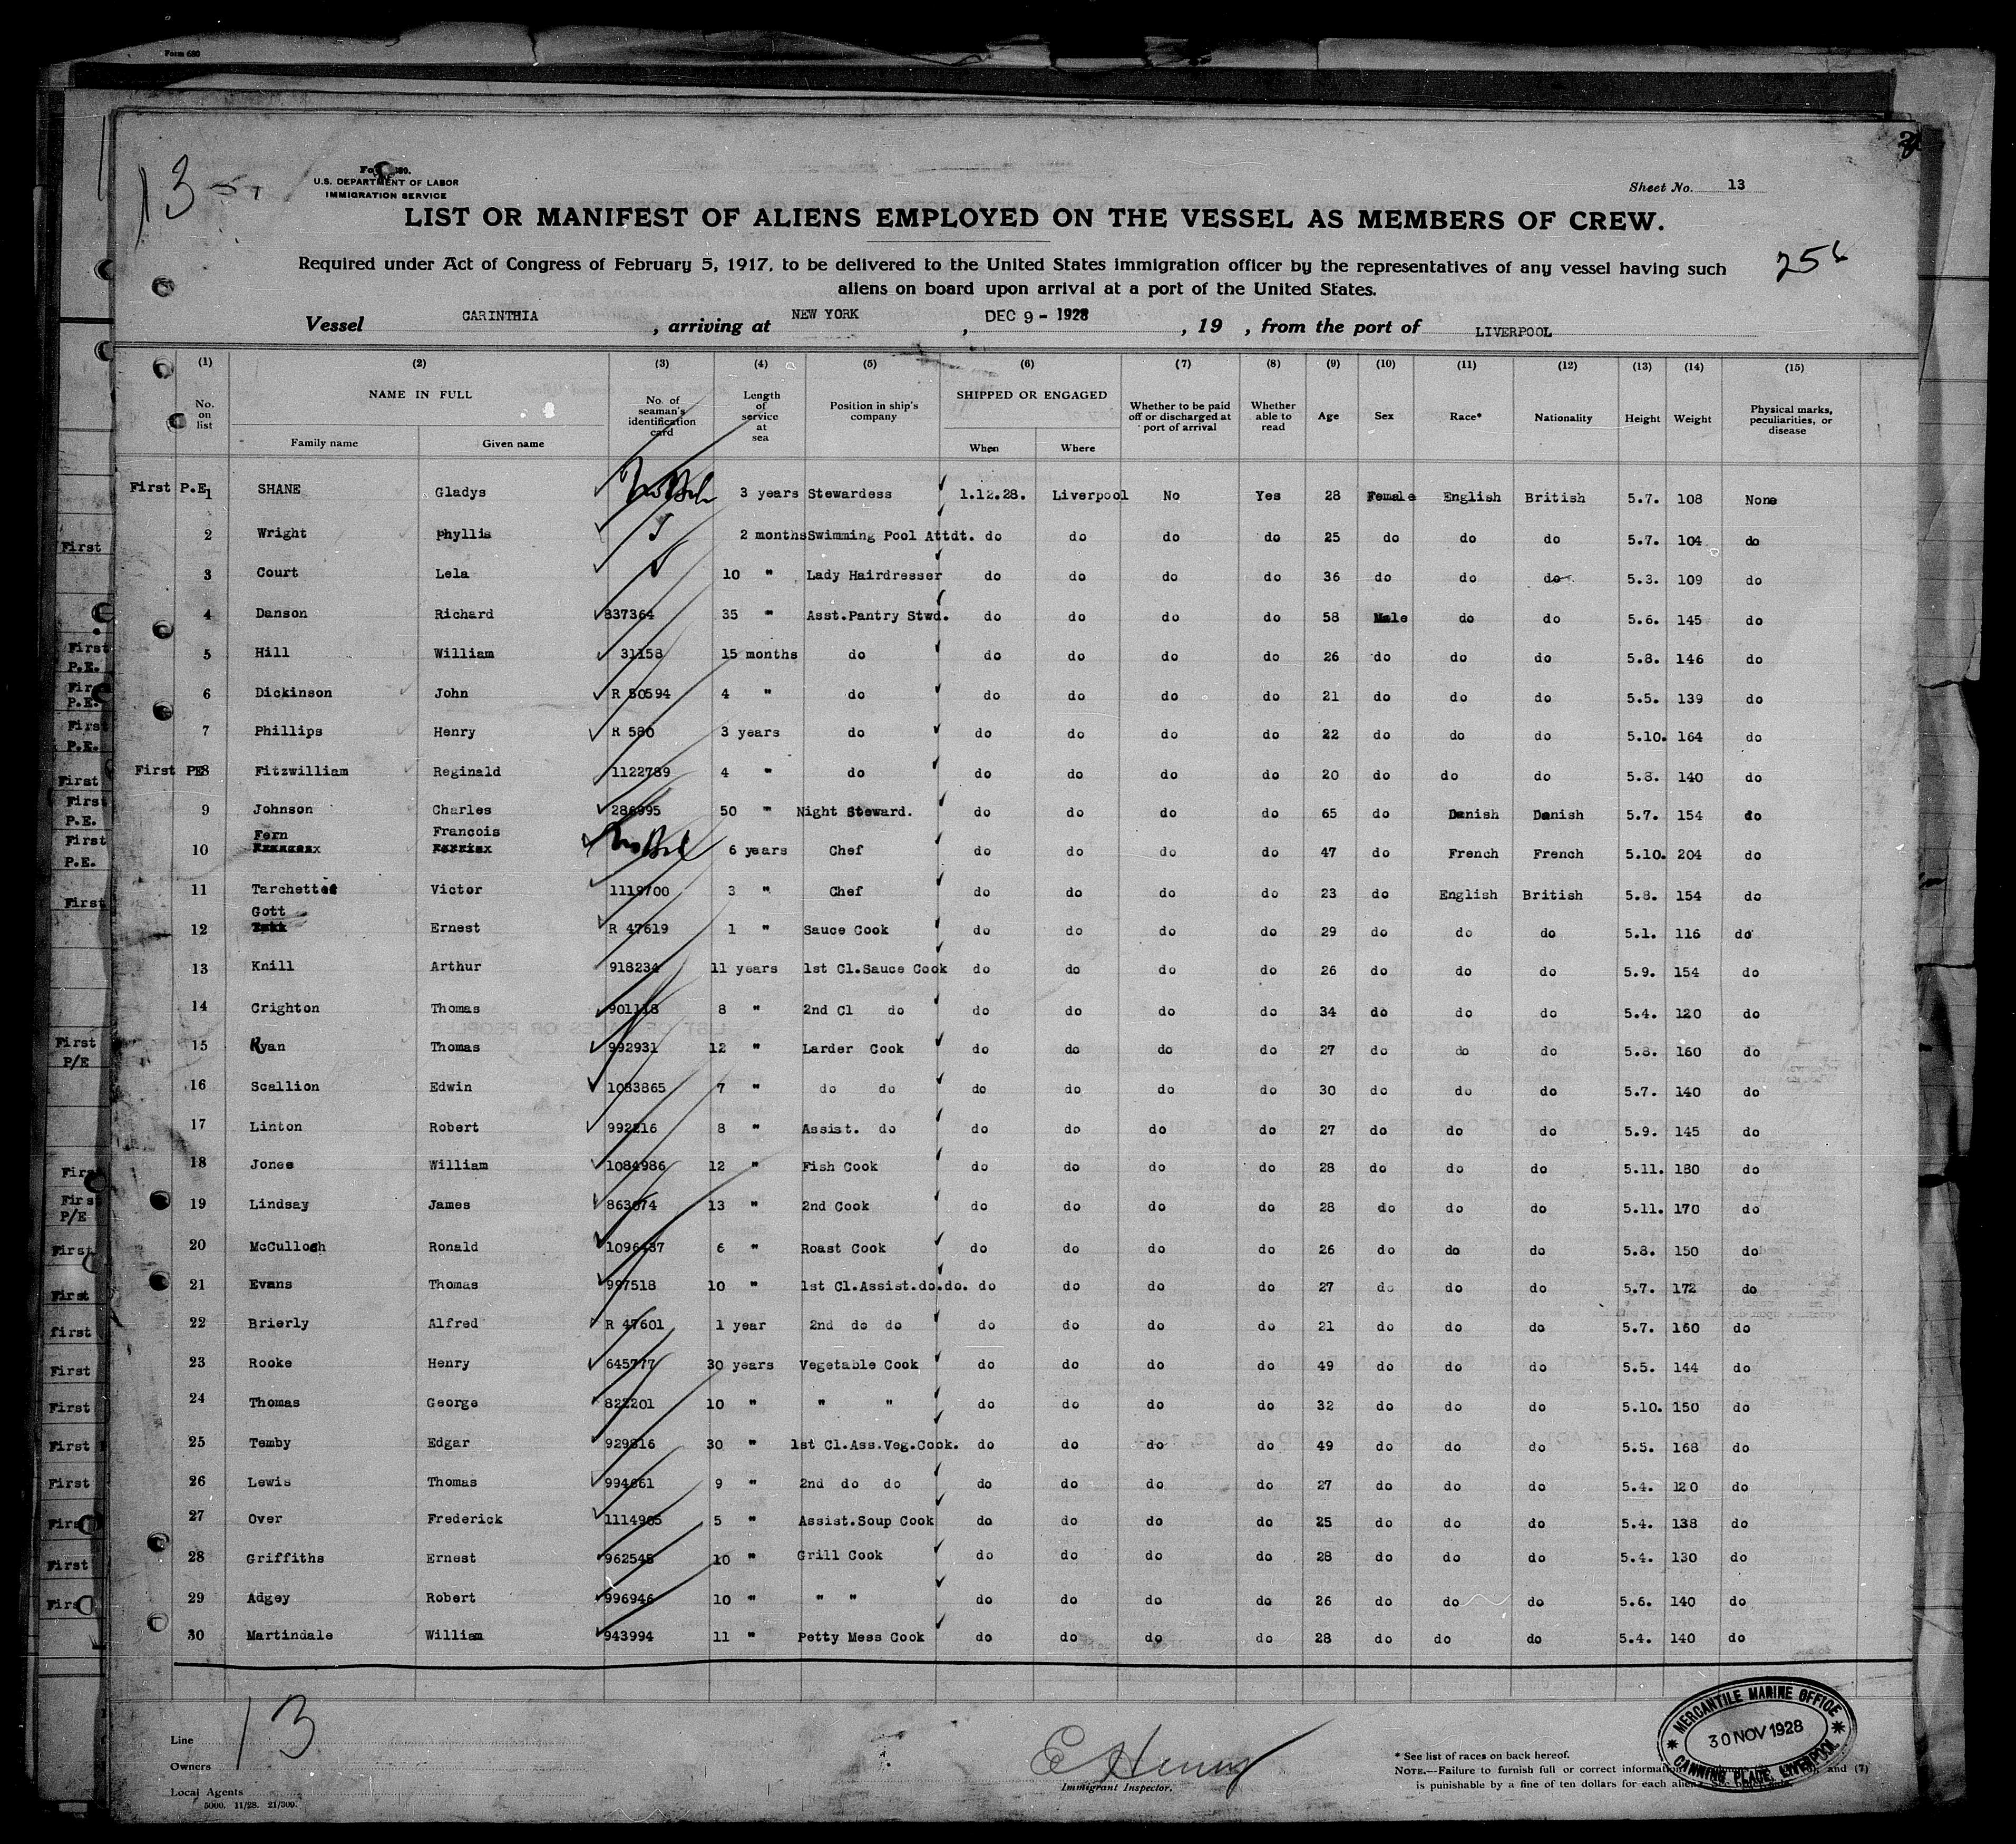 Form 680
3
13
Form 680.
U.S. DEPARTMENT OF LABOR
IMMIGRATION SERVICE
Sheet No. 13
LIST OR MANIFEST OF ALIENS EMPLOYED ON THE VESSEL AS MEMBERS OF CREW.
Required under Act of Congress of February 5, 1917, to be delivered to the United States immigration officer by the representatives of any vessel having such
aliens on board upon arrival at a port of the United States.
Vessel CARINTHIA , arriving at NEW YORK , DEC 9 - 1928 , 19 , from the port of LIVERPOOL
(1) (2) (3) (4) (5) (6) (7) (8) (9) (10) (11) (12) (13) (14) (15)
No. on list NAME IN FULL Family name Given name No. of seaman's identification card Length of service at sea Position in ship's company SHIPPED OR ENGAGED When Where Whether to be paid off or discharged at port of arrival Whether able to read Age Sex Race* Nationality Height Weight Physical marks, peculiarities, or disease
First P.E. 1 SHANE Gladys 3 years Stewardess 1.12.28. Liverpool No Yes 28 Female English British 5.7. 108 None
First 2 Wright Phyllis 2 months Swimming Pool Attdt. do do do do 25 do do do 5.7. 104 do
3 Court Lela 10 " Lady Hairdresser do do do do 36 do do do 5.3. 109 do
4 Danson Richard 837364 35 " Asst.Pantry Stwd. do do do do 58 Male do do 5.6. 145 do
First P.E. 5 Hill William 31158 15 months do do do do do 26 do do do 5.8. 146 do
First P.E. 6 Dickinson John R 50594 4 " do do do do do 21 do do do 5.5. 139 do
First P.E. 7 Phillips Henry R 580 3 years do do do do do 22 do do do 5.10. 164 do
First First PE 8 Fitzwilliam Reginald 1122789 4 " do do do do do 20 do do do 5.8. 140 do
First P.E. 9 Johnson Charles 286995 50 " Night Steward. do do do do 65 do Danish Danish 5.7. 154 do
Fern Francois
First P.E. 10 6 years Chef do do do do 47 do French French 5.10. 204 do
First 11 Tarchettes Victor 1119700 3 " Chef do do do do 23 do English British 5.8. 154 do
Gott
12 Ernest R 47619 1 " Sauce Cook do do do do 29 do do do 5.1. 116 do
13 Knill Arthur 918234 11 years 1st Cl.Sauce Cook do do do do 26 do do do 5.9. 154 do
14 Crighton Thomas 901118 8 " 2nd Cl do do do do do 34 do do do 5.4. 120 do
First P/E 15 Ryan Thomas 992931 12 " Larder Cook do do do do 27 do do do 5.8. 160 do
16 Scallion Edwin 1083865 7 " do do do do do do 30 do do do 5.7. 140 do
17 Linton Robert 992216 8 " Assist. do do do do do 27 do do do 5.9. 145 do
First 18 Jones William 1084986 12 " Fish Cook do do do do 28 do do do 5.11. 180 do
First P/E 19 Lindsay James 863674 13 " 2nd Cook do do do do 28 do do do 5.11. 170 do
First 20 McCulloch Ronald 1096437 6 " Roast Cook do do do do 26 do do do 5.8. 150 do
First 21 Evans Thomas 997518 10 " 1st Cl.Assist.do.do. do do do do 27 do do do 5.7. 172 do
first 22 Brierly Alfred R 47601 1 year 2nd do do do do do do 21 do do do 5.7. 160 do
First 23 Rooke Henry 645777 30 years Vegetable Cook do do do do 49 do do do 5.5. 144 do
First 24 Thomas George 822201 10 " " " do do do do 32 do do do 5.10. 150 do
First 25 Temby Edgar 929816 30 " 1st Cl.Ass.Veg.Cook. do do do do 49 do do do 5.5. 168 do
First 26 Lewis Thomas 994661 9 " 2nd do do do do do do 27 do do do 5.4. 120 do
First 27 Over Frederick 1114905 5 " Assist.Soup Cook do do do do 25 do do do 5.4. 138 do
First 28 Griffiths Ernest 962545 10 " Grill Cook do do do do 28 do do do 5.4. 130 do
First 29 Adgey Robert 996946 10 " " " do do do do 26 do do do 5.6. 140 do
30 Martindale William 943994 11 " Petty Mess Cook do do do do 28 do do do 5.4. 140 do
13
Line
Owners
Local Agents
5000. 11/28. 21/300.
E Henry
Immigrant Inspector.
* See list of races on back hereof.
NOTE.—Failure to furnish full or correct information and (7)
is punishable by a fine of ten dollars for each alien
MERCANTILE MARINE OFFICE
30 NOV 1928
CANNING PLACE, LIVERPOOL